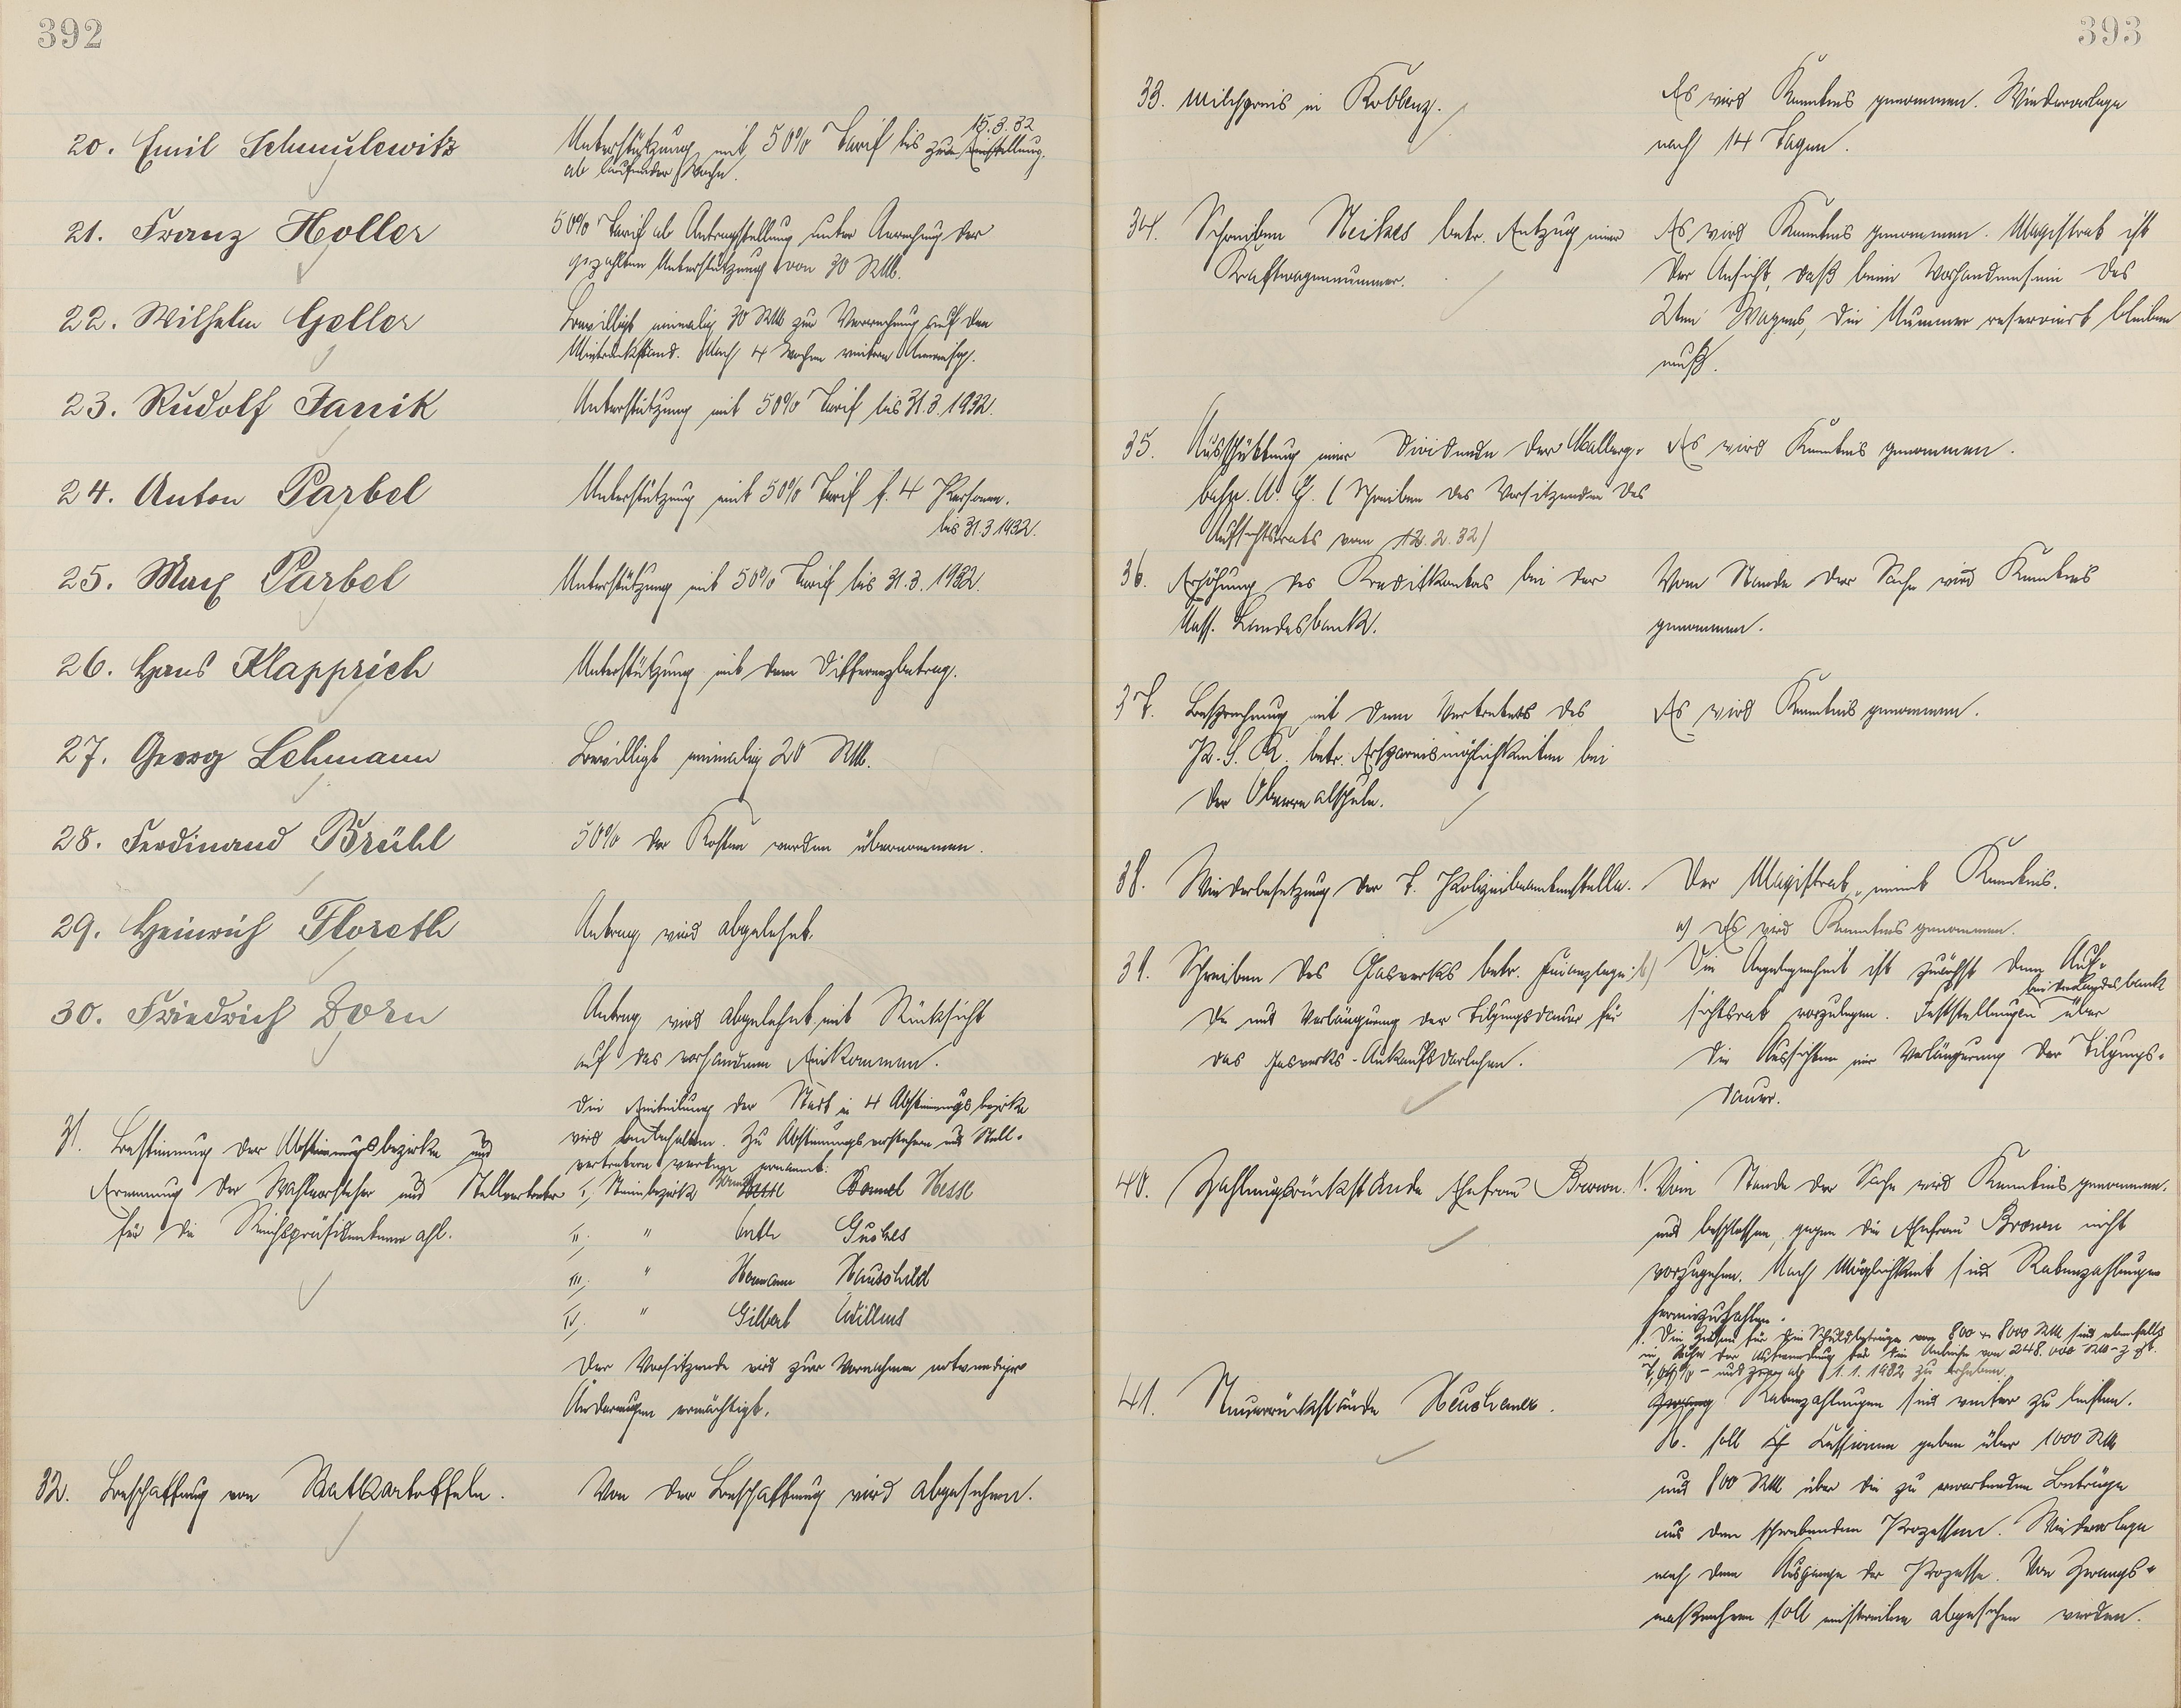 392
20. Emil Schmulewitz
Unterstützung mit 50% Tarif bis zur Einstellung.
15.3.32
ab laufender Woche.
21. Franz Holler
50% Tarif ab Antragstellung unter Anrechnung der
gezahlten Unterstützung von 30 RM.
22. Wilhelm Geller
Bewilligt einmalig 30 RM zur Verrechnung auf den
Mietrückstand. Nach 4 Wochen weitere Anweisg.
23. Rudolf Janik
Unterstützung mit 50% Tarif bis 31.3.1932.
24. Anton Parbel
Unterstützung mit 50% Tarif f. 4 Personen.
bis 31.3.1932.
25. Max Parbel
Unterstützung mit 50% Tarif bis 31.3.1932.
26. Hans Klapprich
Unterstützung mit dem Differenzbetrag.
27. Georg Lehmann
Bewilligt einmalig 20 RM.
28. Ferdinand Brühl
50% der Kosten werden übernommen.
29. Heinrich Floreth
Antrag wird abgelehnt.
30. Friedrich Dorn
Antrag wird abgelehnt mit Rücksicht
auf das vorhandene Einkommen.
31. Bestimmung der Abstimmungsbezirke und
Ernennung der Wahlvorsteher und Stellvertreter
für die Reichspräsidentenwahl.
Die Einteilung der Stadt in 4 Abstimmungsbezirke
wird beibehalten. Zu Abstimmungsvorstehern und Stell-
vertretern werden ernannt:
I, Stimmbezirk Hesse Bonnel Hesse
II, " Guckes
III, " Hermann Hauschild
IV, " Gilbert Willms
Der Vorsitzende wird zur Vornahme notwendiger
Änderungen ermächtigt.
32. Beschaffung von Saatkartoffeln.
Von der Beschaffung wird abgesehen.
393
33. Milchpreis in Koblenz.
Es wird Kenntnis genommen. Wiedervorlage
nach 14 Tagen.
34. Schreiben Heikes betr. Entzug einer
Kraftwagennummer.
Es wird Kenntnis genommen. Magistrat ist
der Ansicht, daß beim Vorhandensein des
2ten Wagens, die Nummer reserviert bleiben
muß.
35. Ausschüttung einer Dividende der Malberg-
bahn. A. G. (Schreiben des Vorsitzenden des
Aufsichtsrats vom 12.2.32)
Es wird Kenntnis genommen.
36. Erhöhung des Kreditkontos bei der
Nass. Landesbank.
Vom Stande der Sache wird Kenntnis
genommen.
37. Besprechung mit dem Vertreter des
P. S. K. betr. Ersparnismöglichkeiten bei
der Oberrealschule.
Es wird Kenntnis genommen.
38. Wiederbesetzung der 7. Polizeibeamtenstelle.
Der Magistrat nimmt Kenntnis.
39. Schreiben des Gaswerks betr. Finanzlage
und Verlängerung der Tilgungsdauer für
das Gaswerks-Ankaufsdarlehen.
a) Es wird Kenntnis genommen.
b) Die Angelegenheit ist zunächst dem Auf-
sichtsrat vorzulegen. Feststellungen bei der Landesbank über
die Aussichten einer Verlängerung der Tilgungs-
dauer.
40. Zahlungsrückstände Ehefrau Brown.
1. Vom Stande der Sache wird Kenntnis genommen.
und beschlossen, gegen die Ehefrau Brown nicht
vorzugehen. Nach Möglichkeit sind Ratenzahlungen
hereinzuholen.
1. Die Zinsen für die Schuldbeträge von 800 + 8000 RM sind ebenfalls
in Höhe der Aufwendung für die Anleihe von 248.000 RM - z. Zt.
% - und zwar ab 1.1.1932 zu erheben.
41. Steuerrückstände Heuchemer.
Ratenzahlungen sind weiter zu leisten.
H. soll Zessionen geben über 1000 RM
und 800 RM über die zu erwartenden Beträge
aus den schwebenden Prozessen. Wiedervorlage
nach dem Ausgange der Prozesse. Von Zwangs-
maßnahmen soll einstweilen abgesehen werden.